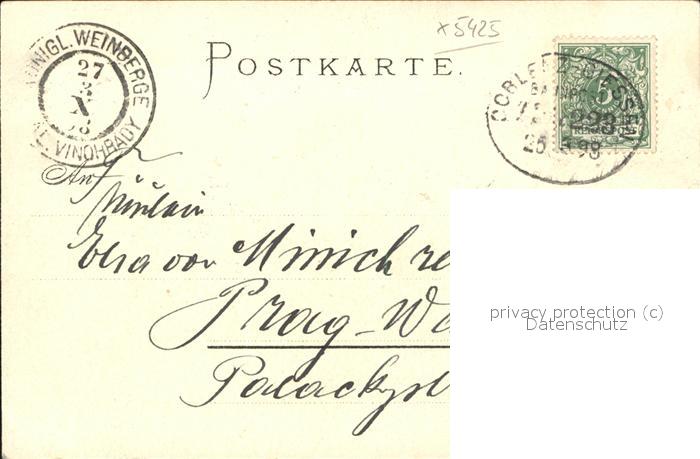 x5425
KÖNIGL. WEINBERGE
27
X
98
VINOHRADY
POSTKARTE.
COBLENZ-GIESSEN
BAHNPOST
223
25 98
5
REICHSPOST
An
Fräulein
Elsa von Minich
Prag-W
Palacky
privacy protection (c)
Datenschutz